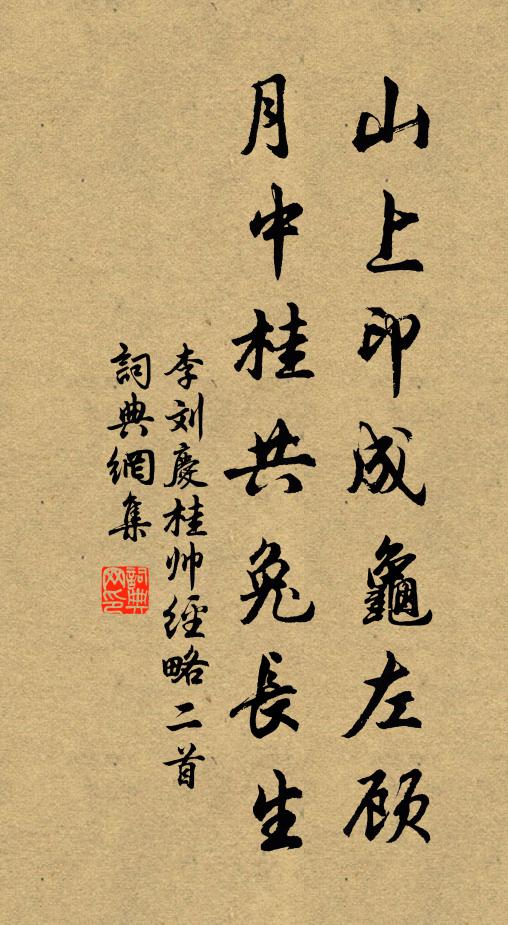 山上印成龜左顾
月中桂共兔長生
李刘慶桂帅經略二首
詞典網集
詞典网印